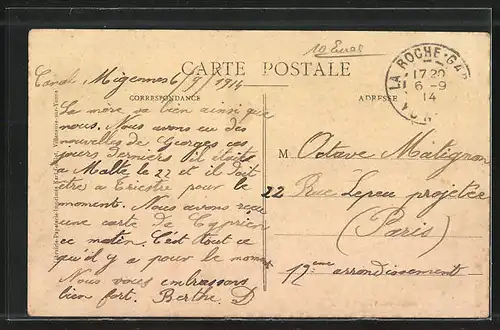 10 Euros
CARTE POSTALE
CORRESPONDANCE
ADRESSE
LA ROCHE-GARE
17 20
6 - 9
14
YONNE
Migennes 6/9/1914
La mère va bien ainsi que
nous. Nous avons eu des
nouvelles de Georges ces
jours derniers il était
a Malte le 22 et il doit
etre a Trieste pour le
moment. Nous avons reçu
une carte de Cyprien
ce matin. C'est tout ce
qu'il y a pour le moment
Nous vous embrassons
bien fort. Berthe D
M Octave Malignon
22 Rue Lepeu projetée
(Paris)
12eme arrondissement